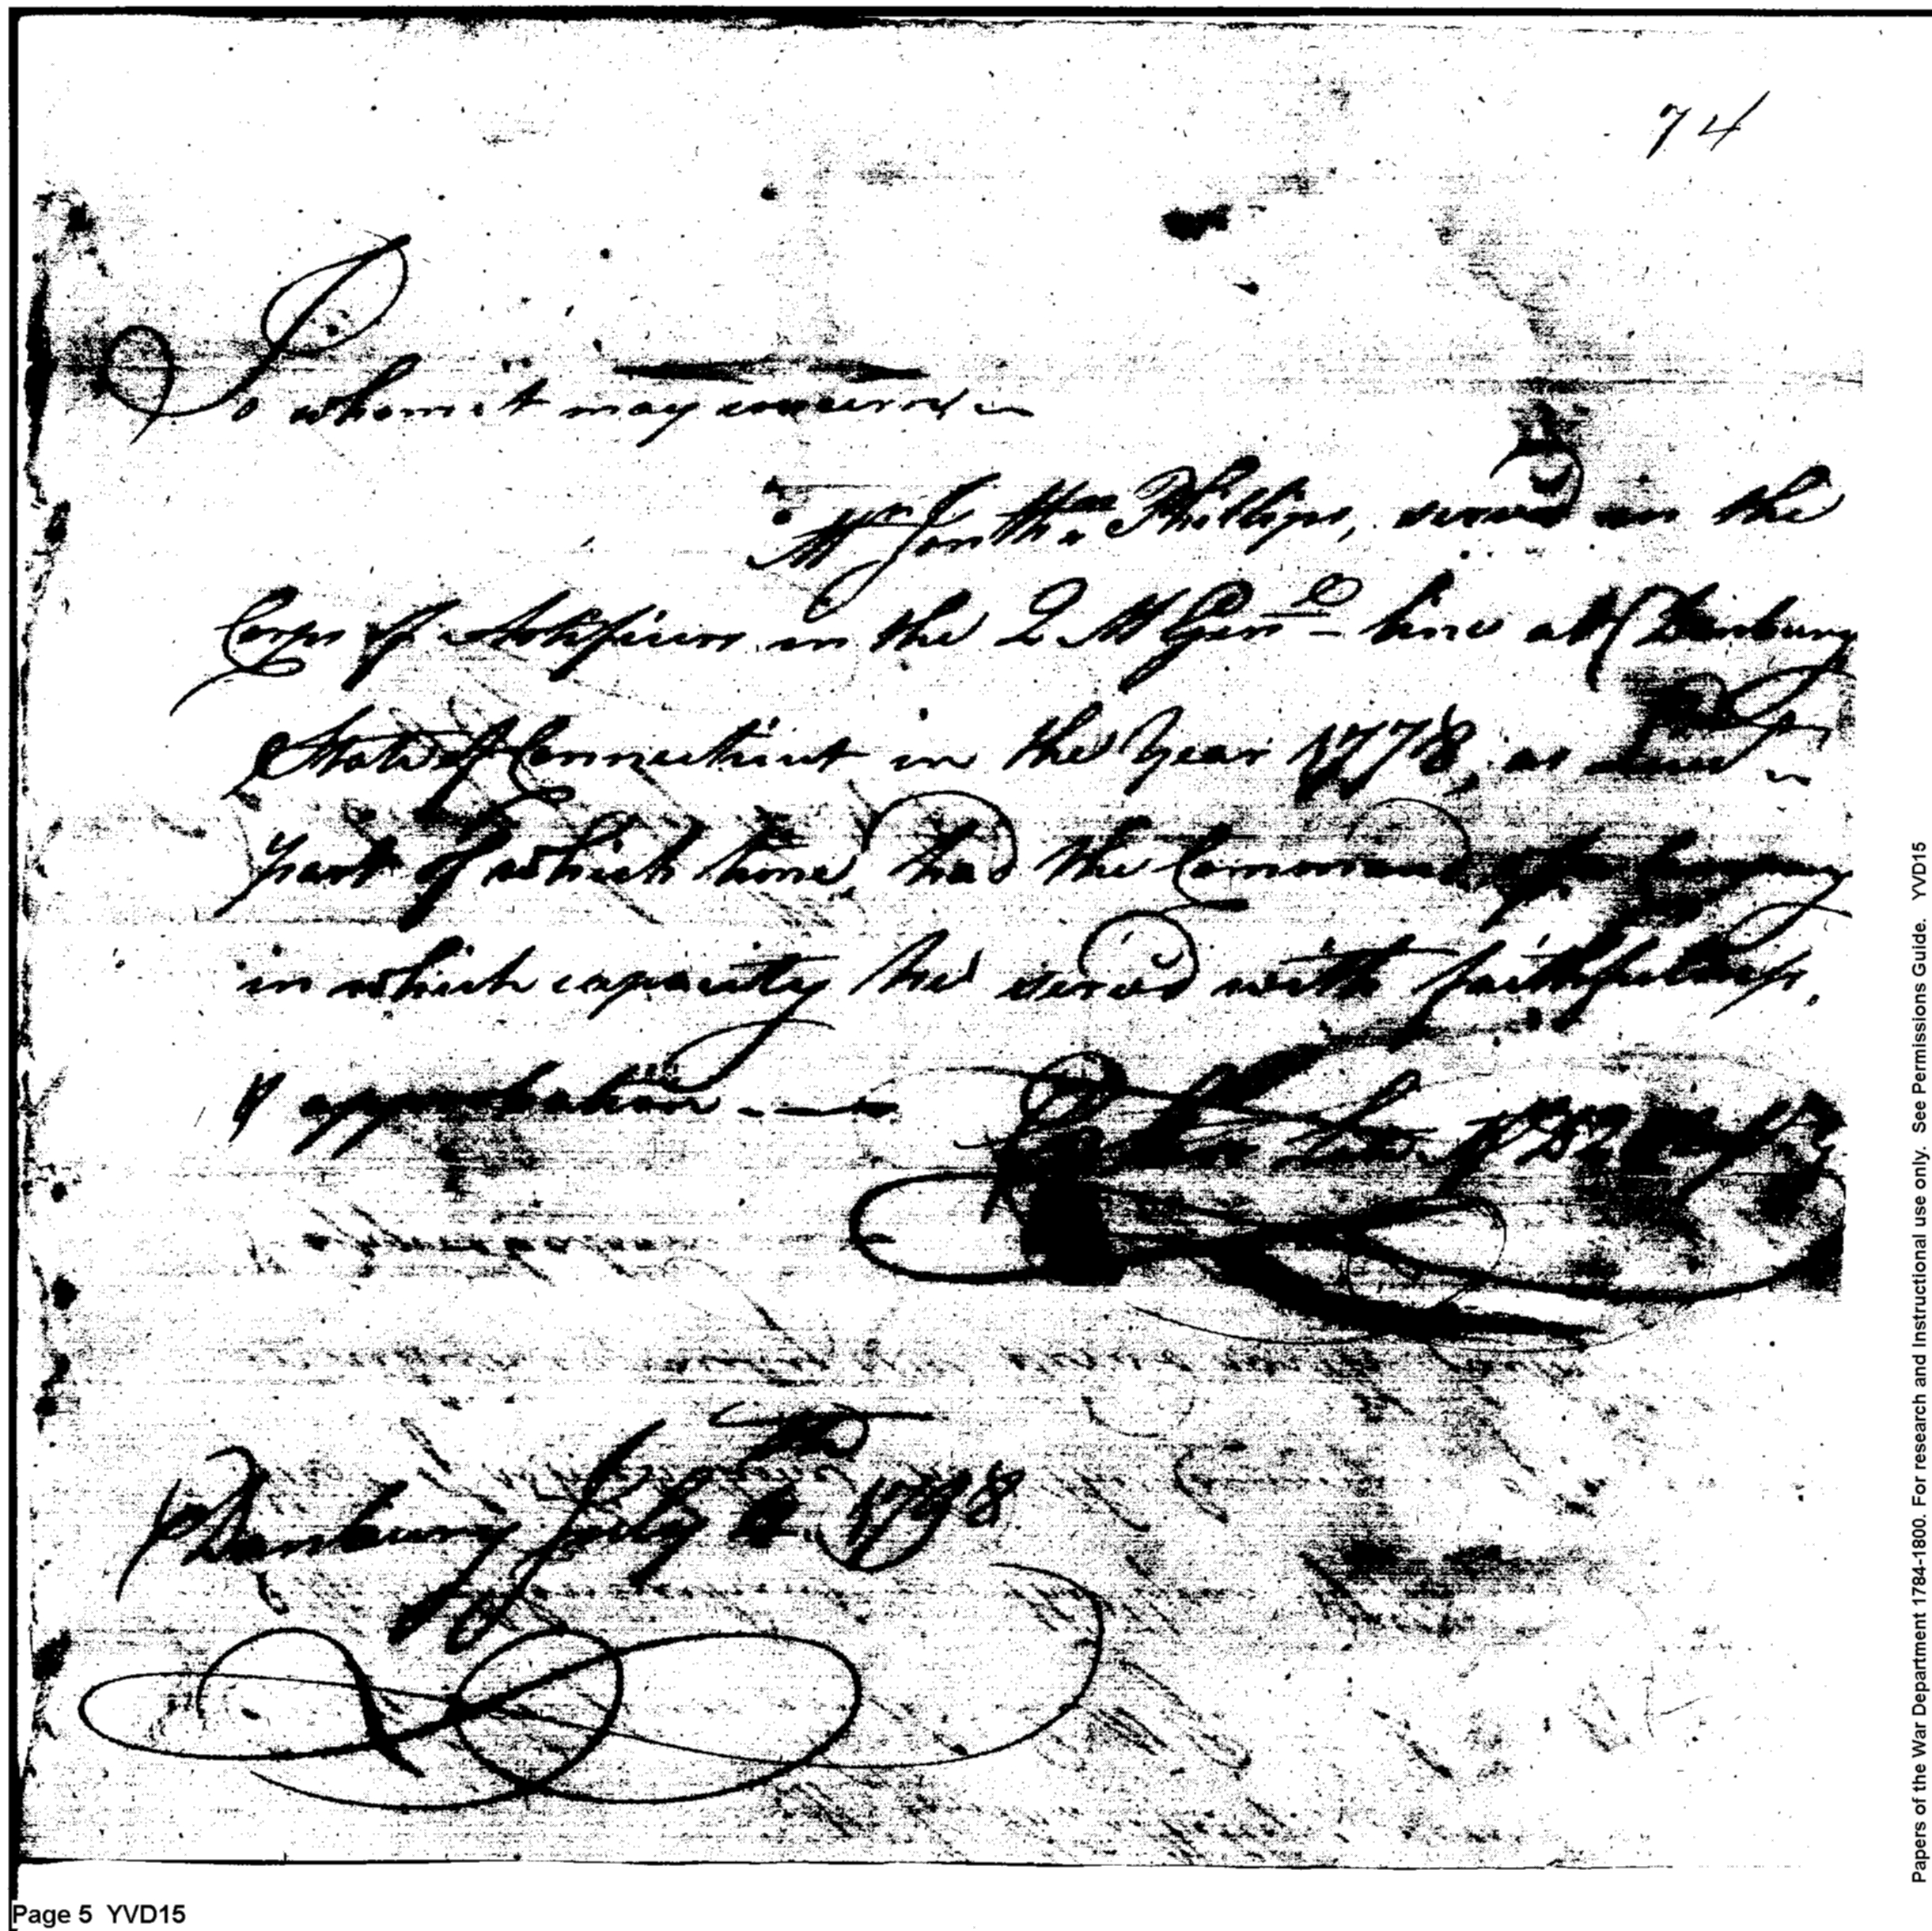 74
To whom it may concern
Mr Jonthn Phillips, served in the
Corps of Artificers in the Q M Genl line at Danbury
State of Connecticut in the Year 1778, as
part of which time, had the Command of a Company
in which capacity he served with faithfulness,
& approbation
Danbury July 1798
Papers of the War Department 1784-1800. For research and Instructional use only. See Permissions Guide. YVD15
Page 5 YVD15